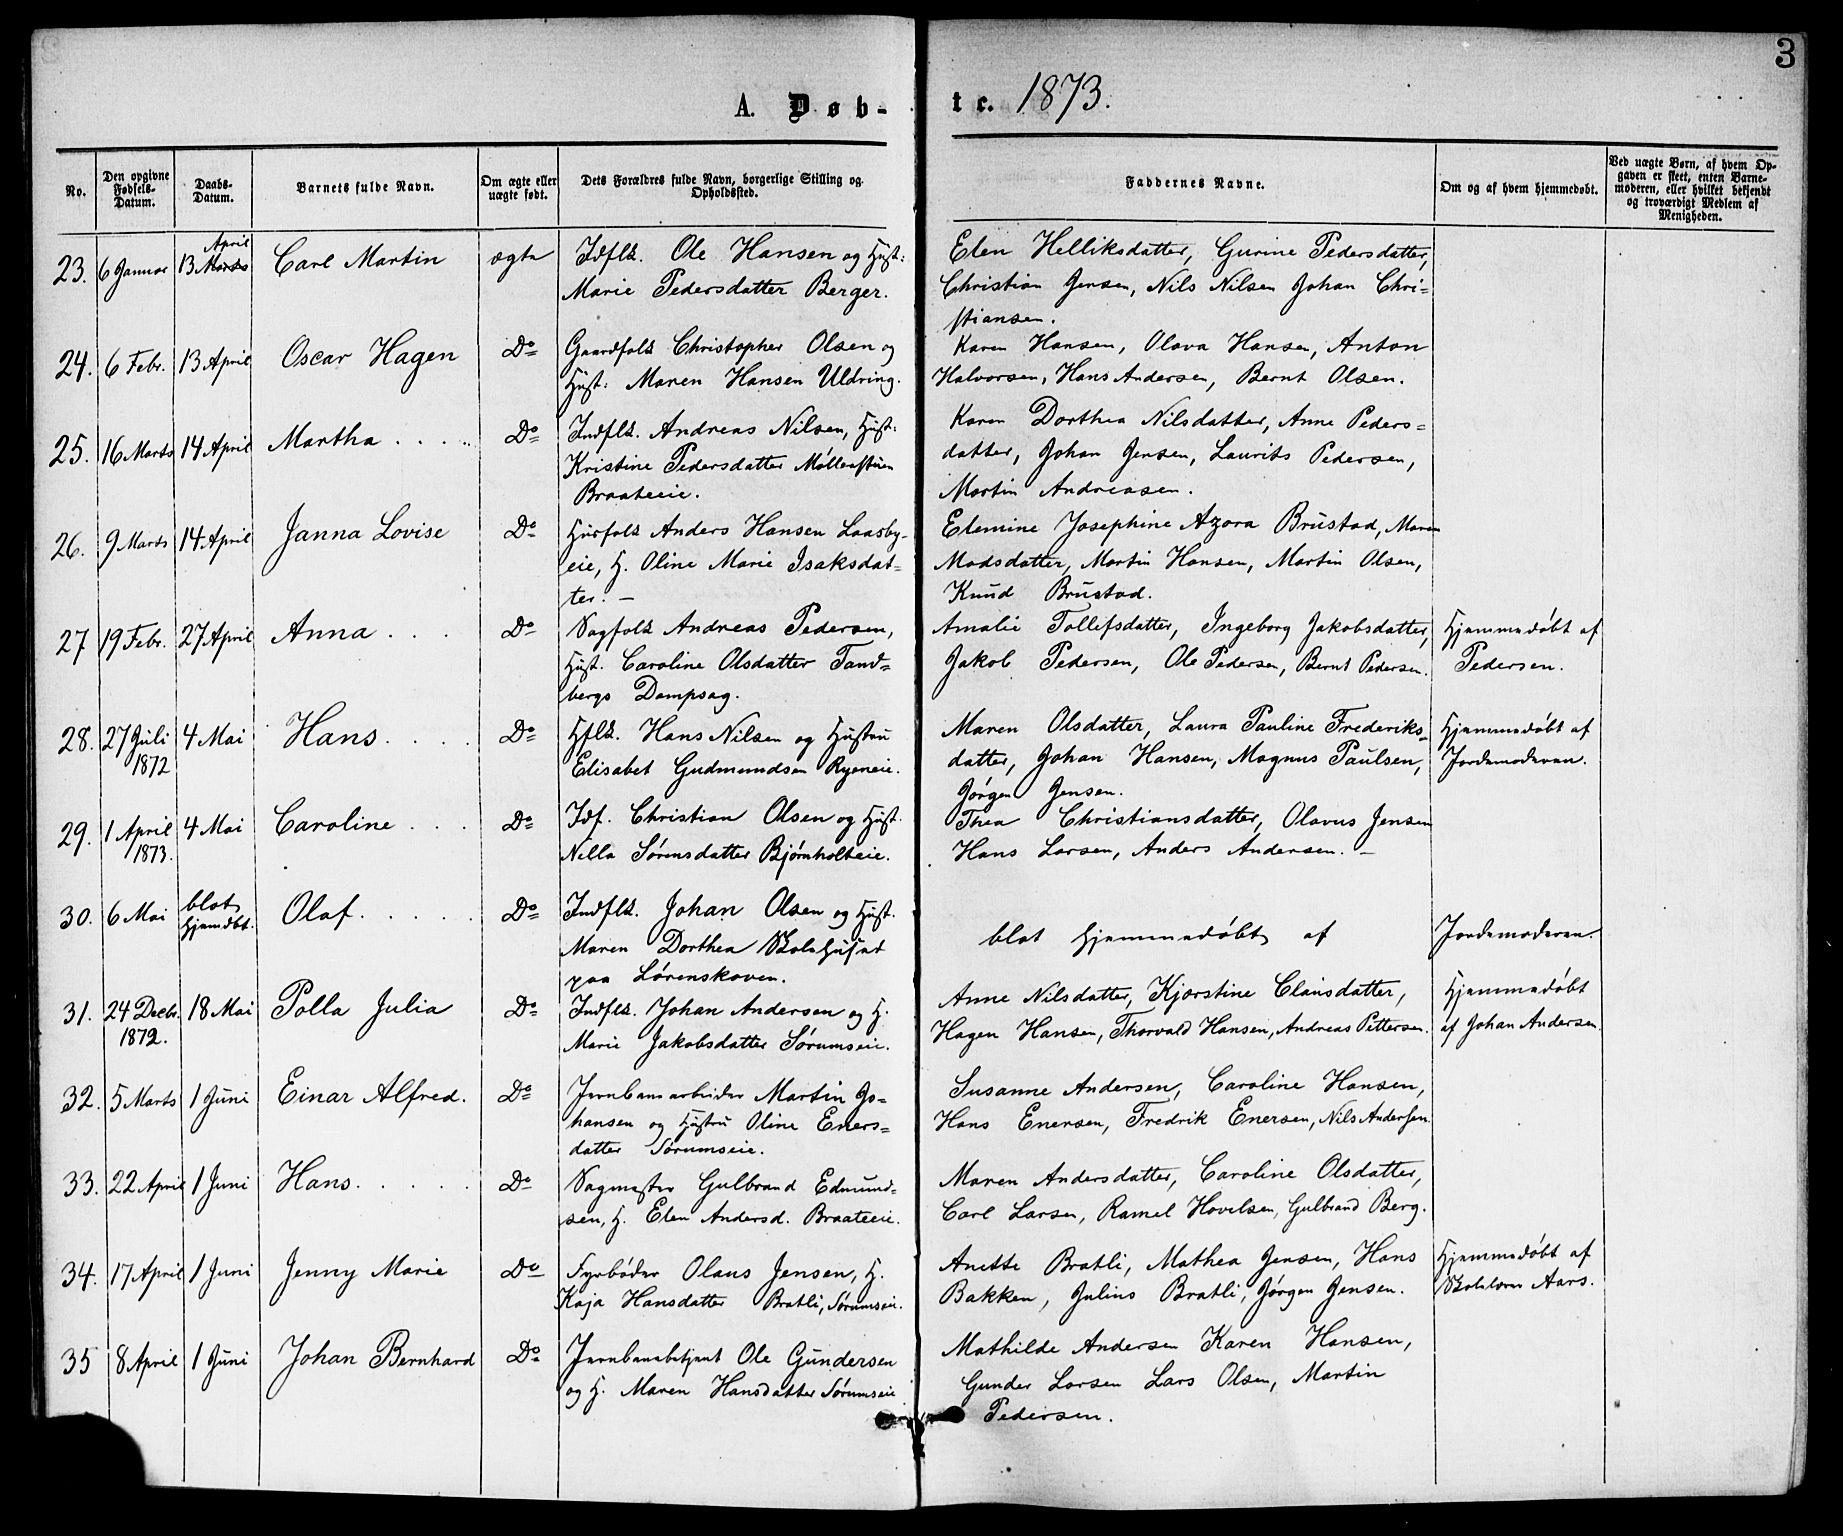 3
A. Døb-
te. 1873.
No.
Den opgivne Fødsels-Datum.
Daabs-Datum.
Barnets fulde Navn.
Om ægte eller uægte født.
Dets Forældres fulde Navn, borgerlige Stilling og Opholdssted.
Faddernes Navne.
Om og af hvem hjemmedøbt.
Ved uægte Børn, af hvem Opgaven er skeet, enten Barnemoderen, eller hvilket bekjendt og troværdigt Medlem af Menigheden.
April
23. 6 Januar 13 Marts Carl Martin ægte Idflk. Ole Hansen og Hust: Elen Helliksdatter, Gurine Pedersdatter,
Marie Pedersdatter Berger. Christian Jensen, Nils Nilsen Johan Chri=
stiansen.
24. 6 Febr. 13 April Oscar Hagen Do Gaardfolk Christopher Olsen og Karen Hansen, Olava Hansen, Anton
Hust: Maren Hansen Uldring. Halvorsen, Hans Andersen, Bernt Olsen.
25. 16 Marts 14 April Martha Do Indflk. Andreas Nilsen, Hust: Karen Dorthea Nilsdatter, Anne Peders=
Kristine Pedersdatter Møllerstuen datter, Johan Jensen, Laurits Pedersen,
Braateeie. Martin Andreasen.
26. 9 Marts 14 April Janna Lovise Do Husfolk Anders Hansen Laasby- Elemine Josephine Azora Brustad, Maren
eie, H. Oline Marie Isaksdat= Madsdatter, Martin Hansen, Martin Olsen,
ter. — Knud Brustad.
27 19 Febr. 27 April Anna Do Sagfolk Andreas Pedersen, Amalie Tollefsdatter, Ingeborg Jakobsdatter, Hjemmedøbt af
Hust. Caroline Olsdatter Tand= Jakob Pedersen, Ole Pedersen, Bernt Pedersen. Pedersen.
bergs Dampsag.
28. 27 Juli 4 Mai Hans Do Hflk. Hans Nilsen og Hustru Maren Olsdatter, Laura Pauline Frederiks= Hjemmedøbt af
1872 Elisabet Gudmundsen Ryeneie. datter, Johan Hansen, Magnus Paulsen, Jordemoderen.
Jørgen Jensen.
29. 1 April 4 Mai Caroline Do Idf. Christian Olsen og Hust. Thea Christiansdatter, Olavus Jensen
1873. Nella Sørensdatter Bjørnholteie. Hans Larsen, Anders Andersen. —
30. 6 Mai blot Olaf Do Indflk. Johan Olsen og Hust.
hjemdøbt. Maren Dorthea Skolehuset blot hjemmedøbt af Jordemoderen.
paa Lørenskoven.
31. 24 Decbr. 18 Mai Polla Julia Do Indflk. Johan Andersen og H. Anne Nilsdatter, Kjærstine Clausdatter, Hjemmedøbt
1872. Marie Jakobsdatter Sørumseie. Hagen Hansen, Thorvald Hansen, Andreas Pettersen. af Johan Andersen.
32. 5 Marts 1 Juni Einar Alfred. Do Jernbanearbeider Martin Jo= Susanne Andersen, Caroline Hansen,
hansen og Hustru Oline Eners= Hans Enersen, Fredrik Enersen, Nils Andersen.
datter Sørumseie.
33. 22 April 1 Juni Hans Do Sagmester Gulbrand Edmund= Maren Andersdatter, Caroline Olsdatter,
sen, H. Elen Andersd. Braateeie. Carl Larsen, Ramel Hovelsen, Gulbrand Berg.
34. 17 April 1 Juni Jenny Marie Do Fyrbøder Olaus Jensen, H. Anette Bratli, Mathea Jensen, Hans Hjemmedøbt af
Kaja Hansdatter Bratli, Sørumseie. Bakken, Julius Bratli, Jørgen Jensen. Skolelærer Aars.
35 8 April 1 Juni Johan Bernhard Do Jernbanebetjent Ole Gundersen Mathilde Andersen Karen Hansen,
og H. Maren Hansdatter Sørumseie Gunder Larsen Lars Olsen, Martin
Pedersen.